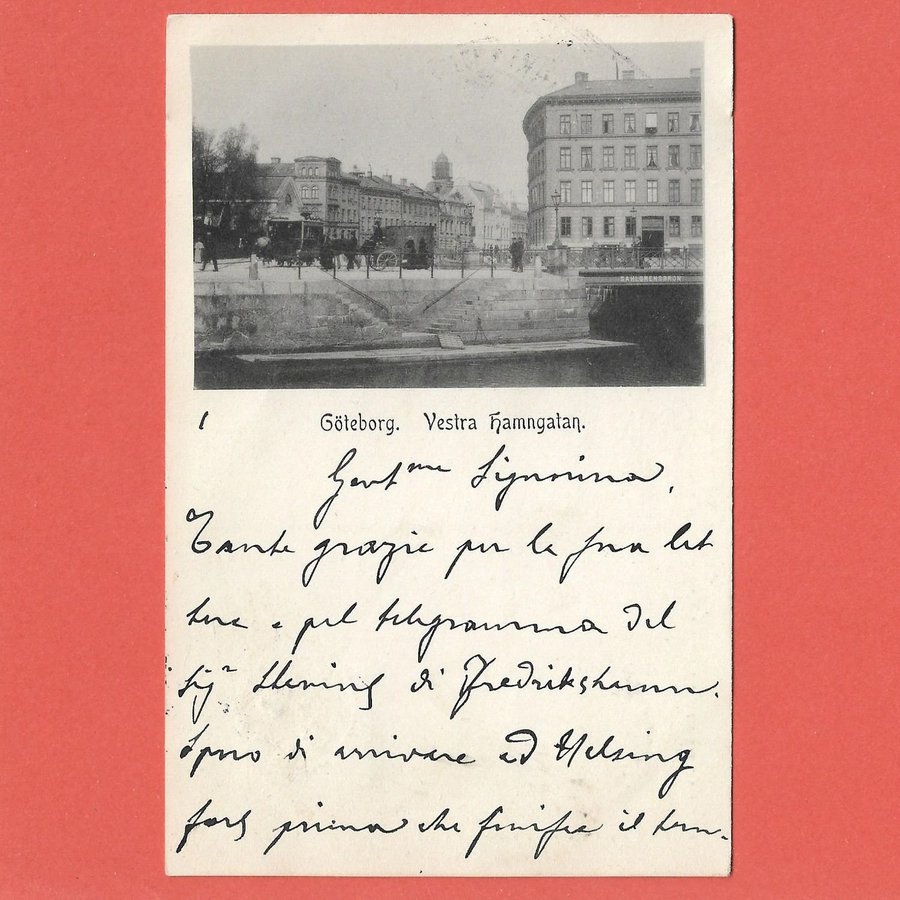 SAHLGRENSBRON
1
Göteborg. Vestra Hamngatan.
Gent.me Signorina,
Tante grazie per la sua let
tera e pel telegramma del
Sigr di Fredrikshamn.
Spero di arrivare ad Helsing
fors prima che finisse il tem-